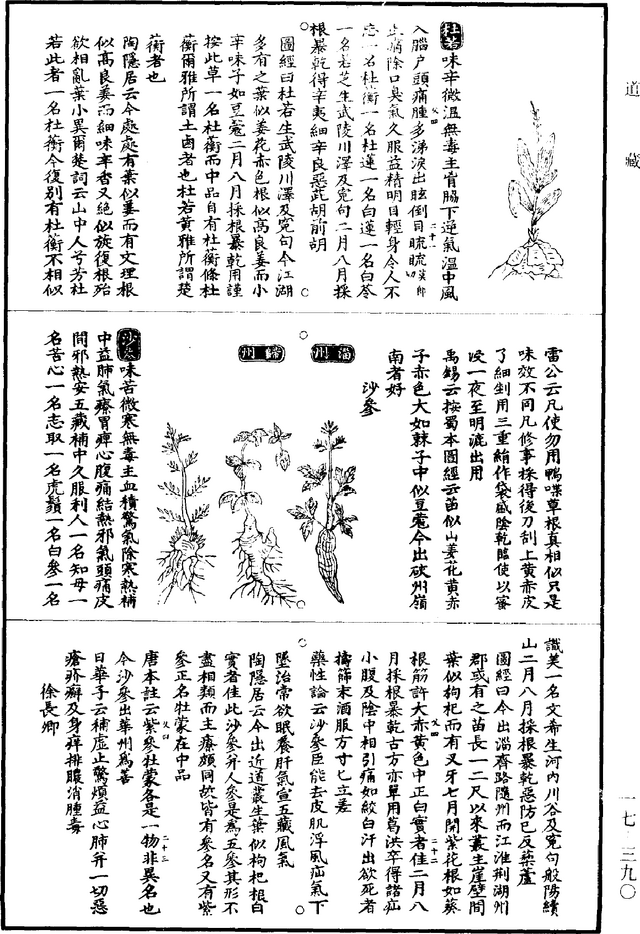 道藏
杜若味辛微溫無毒主胷脇下逆氣溫中風
入腦户頭痛腫多涕淚出眩倒目䀮䀮莫郎切
止痛除口臭氣久服益精明目輕身令人不
忘一名杜蘅一名杜蓮一名白蓮一名白苓
一名若芝生武陵川澤及冤句二月八月採
根暴乾得辛夷細辛良惡茈胡前胡
圖經曰杜若生武陵川澤及冤句今江湖
多有之葉似姜花赤色根似高良姜而小
辛味子如豆蔻二月八月採根暴乾用謹
按此草一名杜蘅而中品自有杜蘅條杜
蘅爾雅所謂土鹵者也杜若黄雅所謂楚
蘅者也
陶隱居云今處處有葉似姜而有文理根
似高良姜而細味辛香又絶似旋復根殆
欲相亂葉小異爾楚詞云山中人兮芳杜
若此者一名杜蘅今復别有杜蘅不相似
雷公云凡使勿用鴨喋草根真相似只是
味效不同凡修事採得後刀刮上黄赤皮
了細剉用三重絹作袋盛陰乾臨使以蜜
浸一夜至明漉出用
禹錫云按蜀本圖經云苗似山姜花黄赤
子赤色大如棘子中似豆蔻今出硤州嶺
南者好
沙參
淄州
歸州
沙參味苦微寒無毒主血積驚氣除寒熱補
中益肺氣療胃痺心腹痛結熱邪氣頭痛皮
間邪熱安五藏補中久服利人一名知母一
名苦心一名志取一名虎鬚一名白參一名
識美一名文希生河内川谷及冤句般陽續
山二月八月採根暴乾惡防已反藜蘆
圖經曰今出淄齊路隨州而江淮荆湖州
郡或有之苗長一二尺以來叢生崖壁間
葉似枸杞而有叉牙七月開紫花根如葵
根筋許大赤黄色中正白實者佳二月八
月採根暴乾古方亦單用葛洪卒得諸疝
小腹及陰中相引痛如絞白汗出欲死者
擣篩末酒服方寸匕立差
藥性論云沙參臣能去皮肌浮風疝氣下
墜治常欲眠養肝氣宣五藏風氣
陶隱居云今出近道叢生葉似枸杞根白
實者佳此沙參并人參是爲五參其形不
盡相類而主療頗同故皆有參名又有紫
參正名牡蒙在中品
唐本註云紫參牡蒙各是一物非異名也
今沙參出華州爲善
日華子云補虚止驚煩益心肺并一切惡
瘡疥癬及身痒排膿消腫毒
徐長卿
一七·三九〇